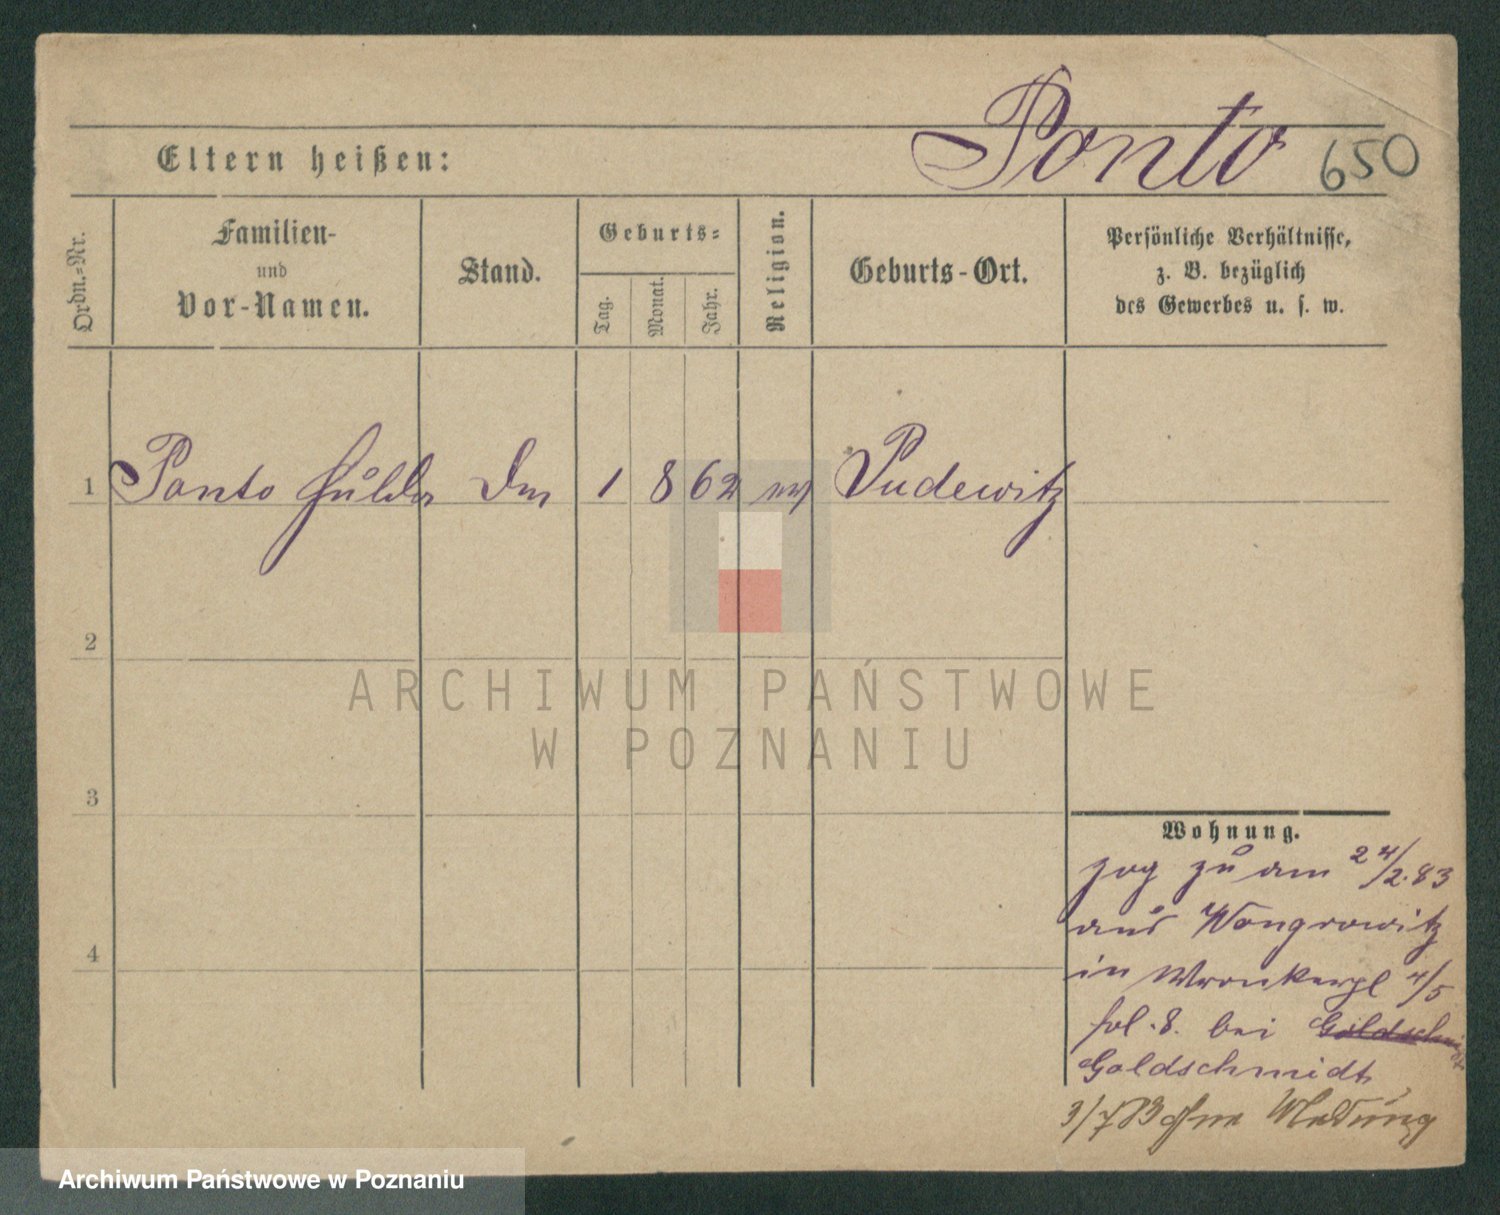 Ponto
650
Eltern heißen:
Ordn.-Nr.
Familien-
und
Vor-Namen.
Stand.
Geburts-
Tag.
Monat.
Jahr.
Religion.
Geburts-Ort.
Persönliche Verhältnisse,
z. B. bezüglich
des Gewerbes u. s. w.
1 Ponto 1 8 62 Pudewitz
2
3
4
ARCHIWUM PAŃSTWOWE
W POZNANIU
Wohnung.
zog zu am 24/2.83
aus Wongrowitz
in Wronkerpl 4/5
fol. 8. bei Goldschmidt
Goldschmidt
3/7 83 ohne Meldung
Archiwum Państwowe w Poznaniu